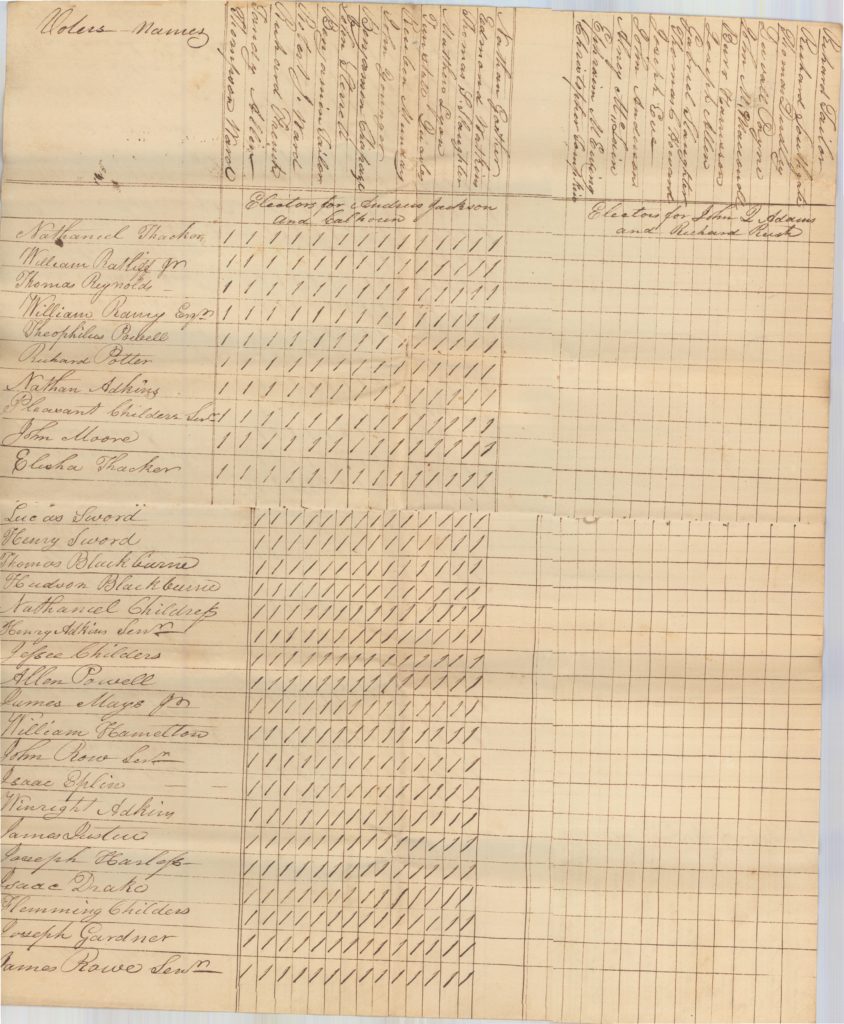 Voters Names
Thompson Ward
Tandy Allen
Richard French
Robert J Ward
Benjamin Tailor
John Sterrett
Benjamin Chapeze
John Younger
Reuben Munday
Tunstall Quarles
Matthew Lyon
Thomas S Slaughter
Edmund Watkins
Nathan Gaither
Christopher Tompkins
Ephraim M Ewing
Alney McLain
John
Joseph Eve
Thomas C Howard
Gabriel Slaughter
Joseph Allen
Burr Harrison
John M McConnell
Duvall Payne
Thomas Dudley
Richard Southgate
Richard Tailor
Electors for Andrew Jackson
and Calhoun
Electors for John Q Adams
and Richard Rush
Nathaniel Thacker
William Ratliff Jr
Thomas Reynolds
William Ramy Esqr
Theophilus Powell
Richard Potter
Nathan Adkins
Pleasant Childers Senr
John Moore
Elisha Thacker
Lucas Sword
Henry Sword
Thomas Blackburne
Hudson Blackburne
Nathaniel Childress
Henry Adkins Senr
Jessee Childers
Allen Powell
James Mays Jr
William Hamelton
John Row Senr
Isaac Eplin
Winright Adkins
James Justice
Joseph Harless
Isaac Drake
Flemming Childers
Joseph Gardner
James Rowe Senr